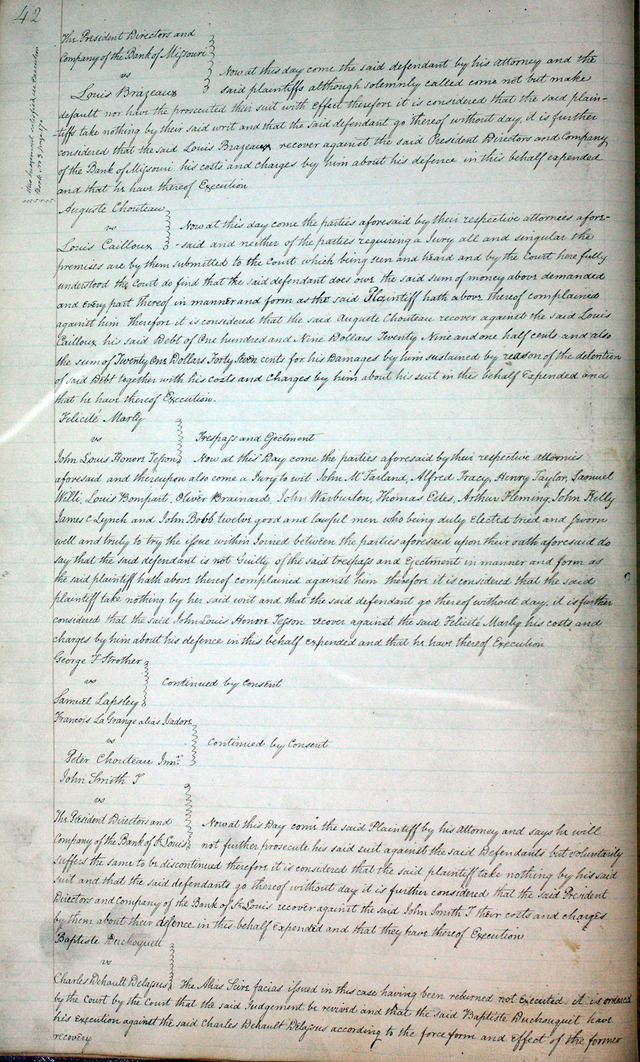 42
The President Directors and
Company of the Bank of Missouri
vs
Louis Brazeaux
Now at this day come the said defendant by his Attorney and the
said plaintiffs although solemnly called come not but make
default nor have the prosecuted their suit with effect therefore it is considered that the said plain-
tiffs take nothing by their said writ and that the said defendant go thereof without day, it is further
considered that the said Louis Brazeaux recover against the said President Directors and Company
of the Bank of Missouri his costs and charges by him about his defence in this behalf expended
and that he have thereof Execution
this judgment satisfied see Execution
Book
Auguste Chouteau
vs
Louis Cailloux
Now at this day come the parties aforesaid by their respective attornees afore-
-said and neither of the parties requiring a Jury all and singular the
premises are by them submitted to the Court which being seen and heard and by the Court here fully
understood the Court do find that the said defendant does owe the said sum of money above demanded
and every part thereof in manner and form as the said Plaintiff hath above thereof complained
against him Therefore it is considered that the said Auguste Chouteau recover against the said Louis
Cailloux his said Debt of One hundred and Nine Dollars Twenty Nine and one half cents and also
the sum of Twenty One Dollars Forty Seven cents for his Damages by him sustained by reason of the detention
of said Debt together with his costs and Charges by him about his suit in the behalf Expended and
that he have thereof Execution.
Felicité Marly
vs
John Louis Honore Tesson
Trespass and Ejectment
Now at this Day come the parties aforesaid by their respective attornies
aforesaid and thereupon also come a Jury to wit John McFarland, Alfred Tracy, Henry Taylor, Samuel
Willi, Louis Bompart, Oliver Brainard, John Warburton, Thomas Estes, Arthur Fleming, John Kelly
James C Lynch and John Bobb twelve good and lawful men who being duly Elected tried and Sworn
well and truly to try the issue within Joined between the parties aforesaid upon their oath aforesaid do
say that the said defendant is not Guilty of the said trespass and Ejectment in manner and form as
the said plaintiff hath above thereof complained against him therefore it is considered that the said
plaintiff take nothing by her said writ and that the said defendant go thereof without day, it is further
considered that the said John Louis Honore Tesson recover against the said Felicité Marly his costs and
charges by him about his defence in this behalf expended and that he have thereof Execution
George F Strother
vs
Samuel Lapsley
Continued by Consent
Francois La Grange alias Isadore
vs
Peter Chouteau Junr.
Continued by Consent
John Smith T
vs
The President Directors and
Company of the Bank of St Louis
Now at this Day come the said Plaintiff by his Attorney and says he will
not further prosecute his said suit against the said Defendants but voluntarily
suffers the same to be discontinued therefore it is considered that the said plaintiff take nothing by his said
suit and that the said defendants go thereof without day it is further considered that the said President
Directors and Company of the Bank of St Louis recover against the said John Smith T their costs and charges
by them about their defence in this behalf expended and that they have thereof Execution
Baptiste Duchoquett
vs
Charles Dehault Delassus
The Alias Scire facias issued in this case having been returned not executed it is ordered
by the Court by the Court that the said Judgement be revived and that the said Baptiste Duchouquet have
his execution against the said Charles Dehault Delassus according to the force form and effect of the former
recovery